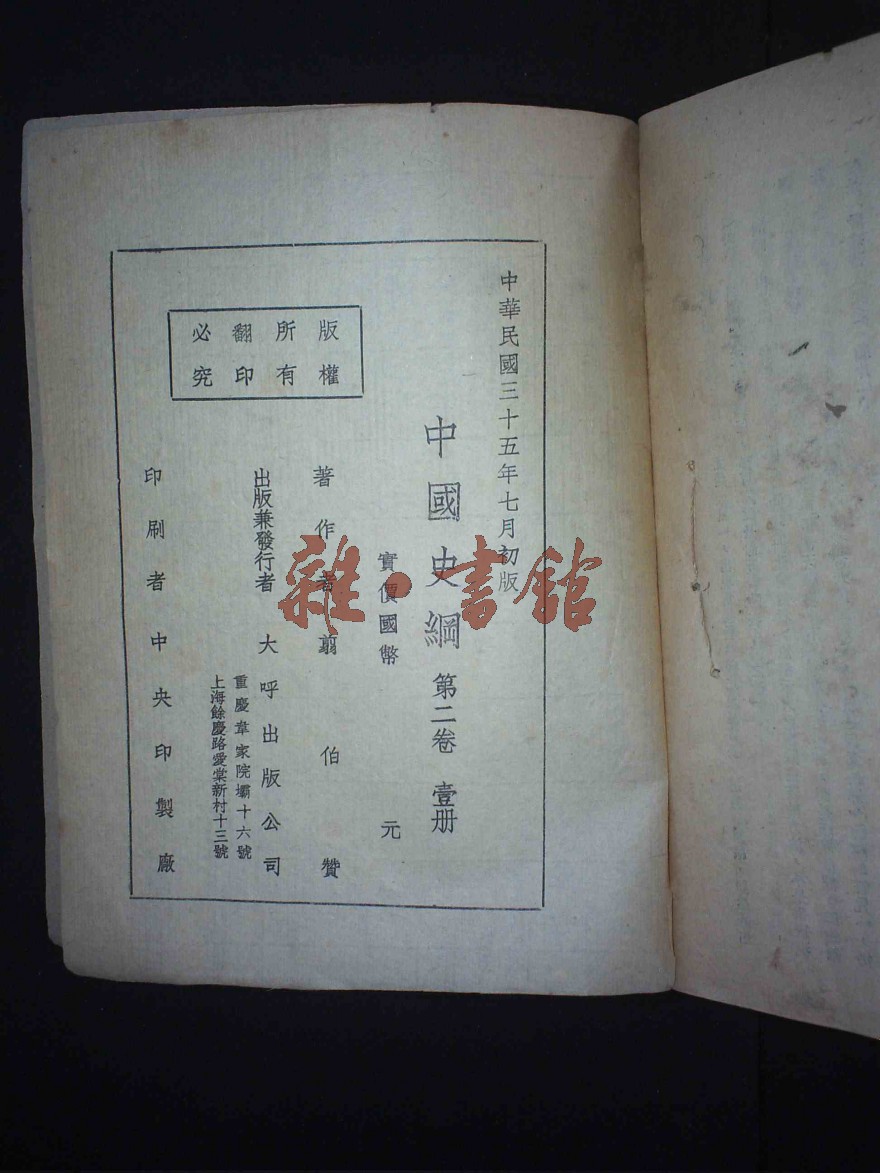 中華民國三十五年七月初版
中國史綱 第二卷 壹册
實價國幣 元
版權
所有
翻印
必究
著作者 翦伯贊
出版兼發行者 大呼出版公司
重慶韋家院壩十六號
上海餘慶路愛棠新村十三號
印刷者 中央印製廠
雜·書館